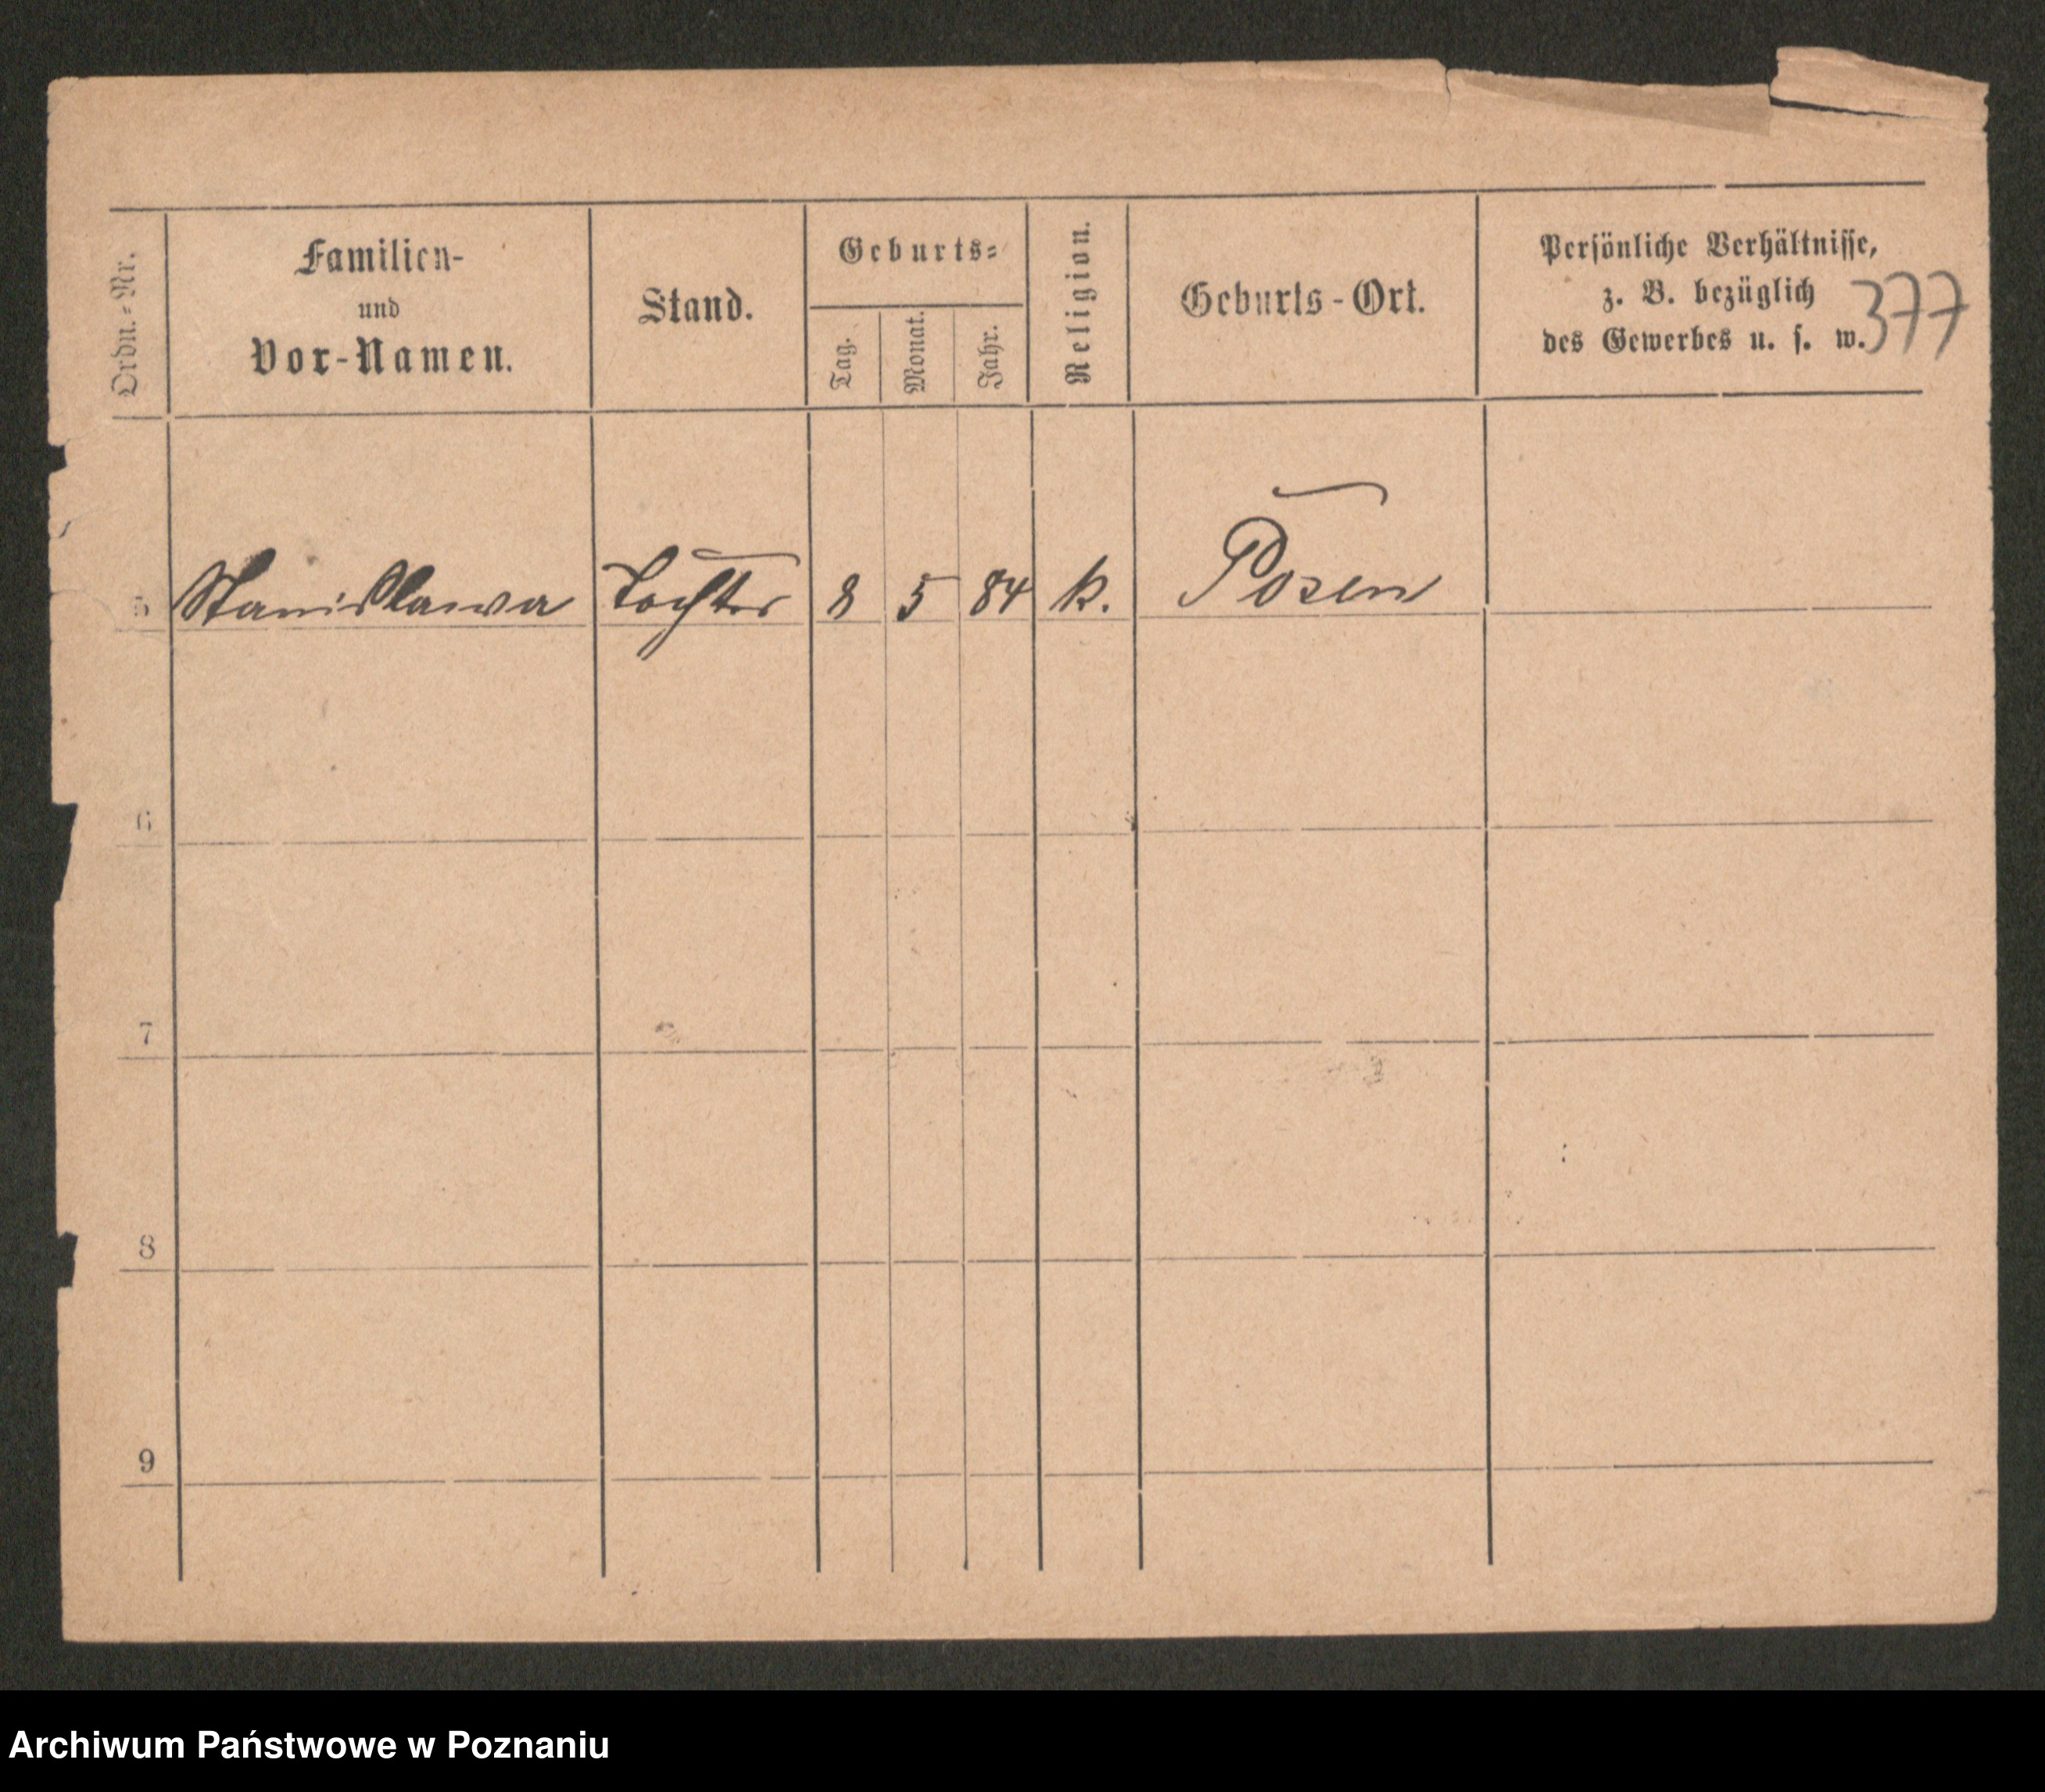 Ordn.-Nr.
Familien-
und
Vor-Namen.
Stand.
Geburts-
Tag.
Monat.
Jahr.
Religion.
Geburts-Ort.
Persönliche Verhältnisse,
z. B. bezüglich
des Gewerbes u. s. w.
377
5 Stanislawa Tochter 8 5 84 k. Posen
6
7
8
9
Archiwum Państwowe w Poznaniu